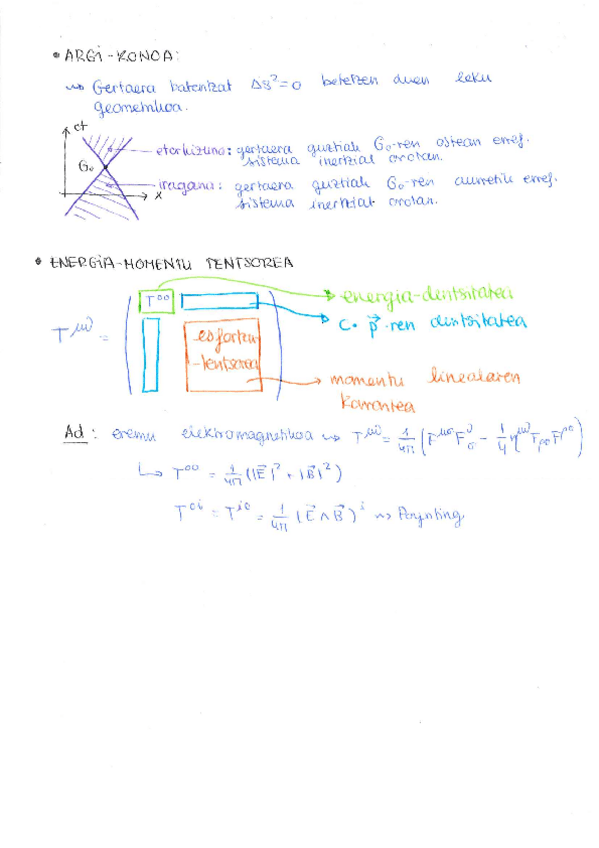 • ARGI-KONOA:
↝ Gertaera batentzat Δs²=0 betetzen duen leku
geometrikoa.
ct
etorkizuna: gertaera guztiak G₀-ren ostean erref.
sistema inertzial orotan.
G₀
iragana: gertaera guztiak G₀-ren aurretik erref.
x
sistema inertzial orotan.
• ENERGIA-MOMENTU TENTSOREA
T⁰⁰ → energia-dentsitatea
→ c·p⃗-ren dentsitatea
T^μν =
esfortzu
-tentsorea
→ momentu linealaren
korrontea
Ad: eremu elektromagnetikoa ↝ T^μν = 1/4π (F^μσ F^ν_σ - 1/4 η^μν F_ρσ F^ρσ)
↳ T⁰⁰ = 1/4π (|E⃗|² + |B⃗|²)
T^0i = T^i0 = 1/4π (E⃗ ∧ B⃗)^i ↝ Poynting